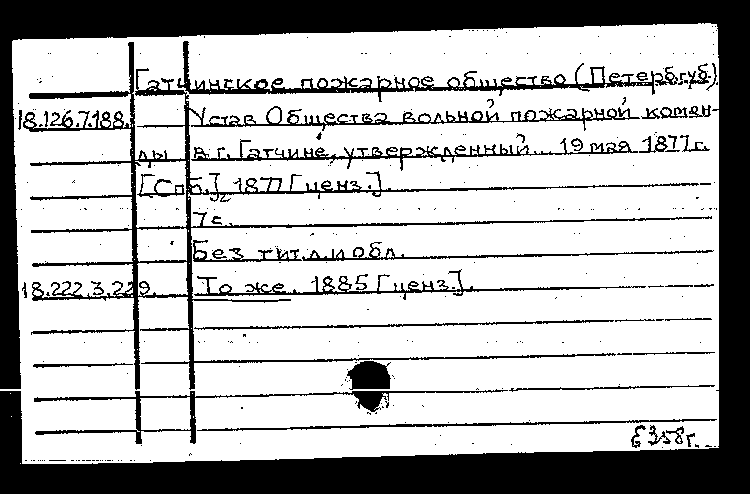 Гатчинское пожарное общество (Петерб.губ.)
18.126.7.188. Устав Общества вольной пожарной комен-
ды в г. Гатчине, утвержденный... 19 мая 1877 г.
[Спб.], 1877 [ценз.].
7 с.
Без тит.л. и обл.
18.222.3.229. То же. 1885 [ценз.].